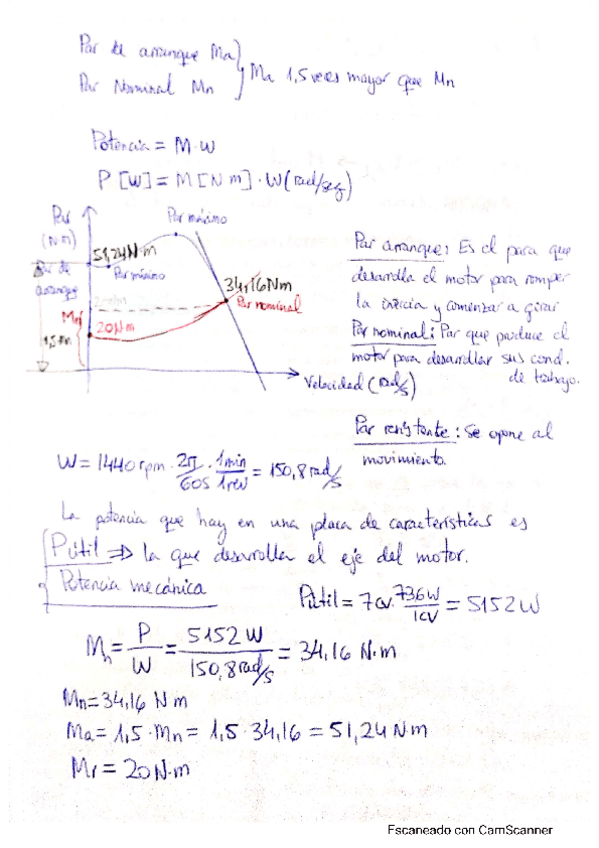 Par de arranque Ma
Par Nominal Mn
Ma 1,5 veces mayor que Mn
Potencia = M·W
P [W] = M [N m] · W (rad/seg)
Par
(N m)
Par máximo
51,24 N·m
Par mínimo
Par de
arranque
34,16 Nm
Par nominal
Mn
20 N m
Velocidad (rad/s)
Par arranque: Es el para que
desarrolla el motor para romper
la inercia y comenzar a girar
Par nominal: Par que produce el
motor para desarrollar sus cond.
de trabajo.
Par resistente: Se opone al
movimiento.
W = 1440 rpm · 2π/60s · 1min/1rev = 150,8 rad/s
La potencia que hay en una placa de características es
Pútil ⇒ la que desarrolla el eje del motor.
Potencia mecánica
Pútil = 7cv · 736W/1CV = 5152 W
Mn = P/W = 5152 W/150,8 rad/s = 34,16 N·m
Mn = 34,16 N m
Ma = 1,5 · Mn = 1,5 · 34,16 = 51,24 N m
Mr = 20 N·m
Escaneado con CamScanner